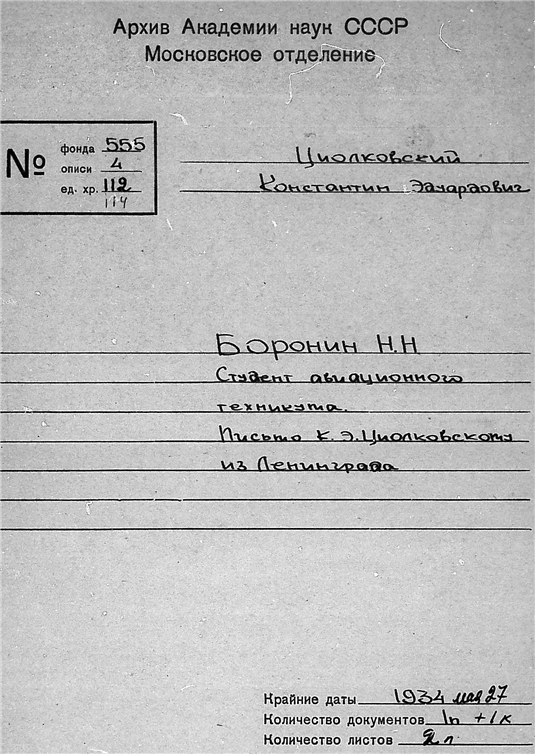 Архив Академии наук СССР
Московское отделение
№
фонда 555
описи 4
ед. хр. 112
114
Циолковский
Константин Эдуардович
Боронин Н.Н
Студент авиационного
техникума.
Письмо К.Э.Циолковскому
из Ленинграда
Крайние даты 1934 мая 27
Количество документов 1п +1к
Количество листов 2 л.